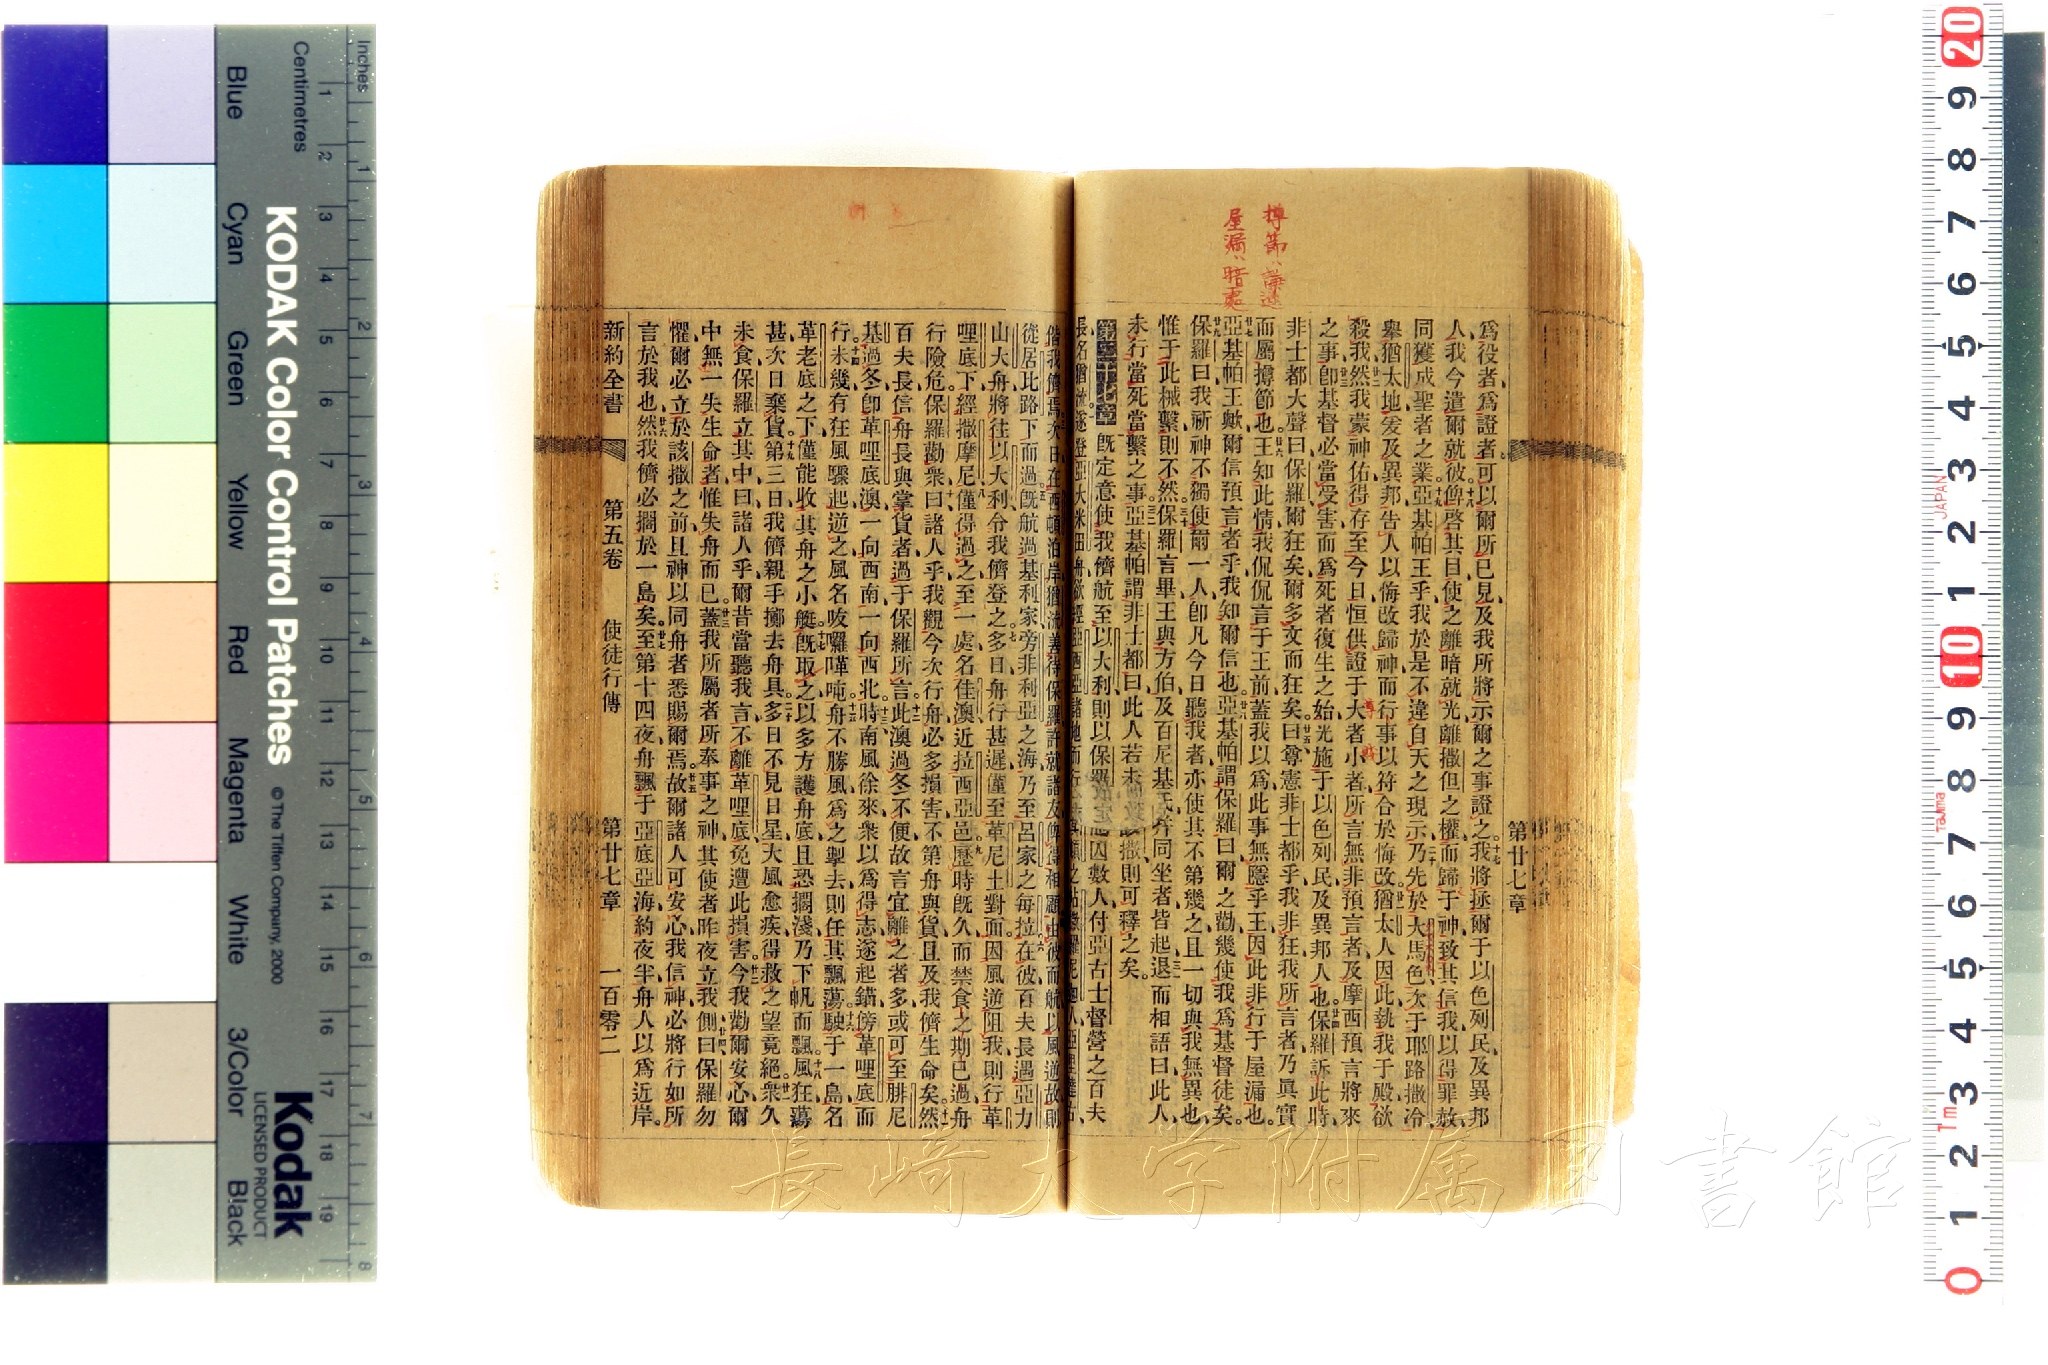 撙節ハ謙遜
屋漏ハ暗処
爲役者爲證者可以爾所已見及我所將示爾之事證之。十七我將拯爾于以色列民及異邦
人、我今遣爾就彼、十八俾啓其目、使之離暗就光、離撒但之權而歸于神、致其信我以得罪赦、
同獲成聖者之業。十九亞基帕王乎、我於是不違自天之現示、二十乃先於大馬色、次于耶路撒冷、
舉猶太地、爰及異邦、告人以悔改歸神、而行事以符合於悔改、廿一猶太人因此執我于殿、欲
殺我、廿二然我蒙神佑、得存至今日、恒供證于大者小者、所言無非預言者及摩西預言將來
之事、廿三卽基督必當受害、而爲死者復生之始、光施于以色列民及異邦人也。廿四保羅訴此時、
非士都大聲曰、保羅、爾狂矣、爾多文而狂矣。廿五曰、尊憲非士都乎、我非狂、我所言者乃眞實
而屬撙節也。廿六王知此情、我侃侃言于王前、蓋我以爲此事無隱乎王、因此非行于屋漏也。
廿七亞基帕王歟、爾信預言者乎、我知爾信也。廿八亞基帕謂保羅曰、爾之勸幾使我爲基督徒矣。
廿九保羅曰、我祈神、不獨使爾一人、卽凡今日聽我者、亦使其不第幾之、且一切與我無異也、
惟于此械繫則不然。三十保羅言畢、王與方伯及百尼基氏幷同坐者皆起退、卅一而相語曰、此人
未行當死當繫之事。卅二亞基帕謂非士都曰、此人若未 撒則可釋之矣。
第二十七章 既定意使我儕航至以大利、則以保羅 他囚數人付亞古士督營之百夫
長、名猶流
偕我儕焉、次日在西頓泊岸、猶流善待保羅、許就諸友、俾得相顧、由彼而航、以風逆故、則
從居比路下而過、既航過基利家旁非利亞之海、乃至呂家之每拉、在彼百夫長遇亞力
山大舟、將往以大利、令我儕登之。七多日舟行甚遲、僅至革尼士對面、因風逆阻我、則行革
哩底下、經撒摩尼、八僅得過之、至一處名佳澳、近拉西亞邑。九歷時既久、而禁食之期已過、舟
行險危、保羅勸衆曰、十諸人乎、我觀今次行舟、必多損害、不第舟與貨、且及我儕生命矣。十一然
百夫長信舟長與掌貨者、過于保羅所言、十二此澳過冬不便、故言宜離之者多、或可至腓尼
基過冬、卽革哩底澳、一向西南、一向西北。十三時南風徐來、衆以爲得志、遂起錨、傍革哩底而
行。十四未幾、有狂風驟起逆之、風名咬囉嘩吨、十五舟不勝風、爲之掣去、則任其飄蕩、十六駛于一島、名
革老底之下、僅能收其舟之小艇、十七既取之、以多方護舟底、且恐擱淺、乃下帆而飄。十八風狂蕩
甚、次日棄貨、十九第三日我儕親手擲去舟具。二十多日不見日星、大風愈疾、得救之望竟絕、廿一衆久
未食、保羅立其中曰、諸人乎、爾昔當聽我言、不離革哩底、免遭此損害、廿二今我勸爾安心、爾
中無一失生命者、惟失舟而已。廿三蓋我所屬者、所奉事之神、其使者昨夜立我側曰、廿四保羅勿
懼、爾必立於該撒之前、且神以同舟者悉賜爾焉。廿五故爾諸人可安心、我信神必將行如所
言於我也、廿六然我儕必擱於一島矣。廿七至第十四夜、舟飄于亞底亞海、約夜半、舟人以爲近岸。
新約全書 第五卷 使徒行傳 第廿七章 一百零二
第廿七章
長崎大学附属図書館
Inches
Centimetres
1 2 3 4 5 6 7 8 9 10 11 12 13 14 15 16 17 18 19
1 2 3 4 5 6 7 8
KODAK Color Control Patches
© The Tiffen Company, 2000
Kodak
LICENSED PRODUCT
Blue
Cyan
Green
Yellow
Red
Magenta
White
3/Color
Black
20 9 8 7 6 5 4 3 2 1 10 9 8 7 6 5 4 3 2 1 0
JAPAN
Tajima
Tm